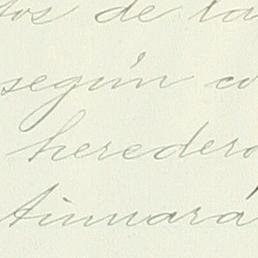 tos de la
según co
heredero
tinnará